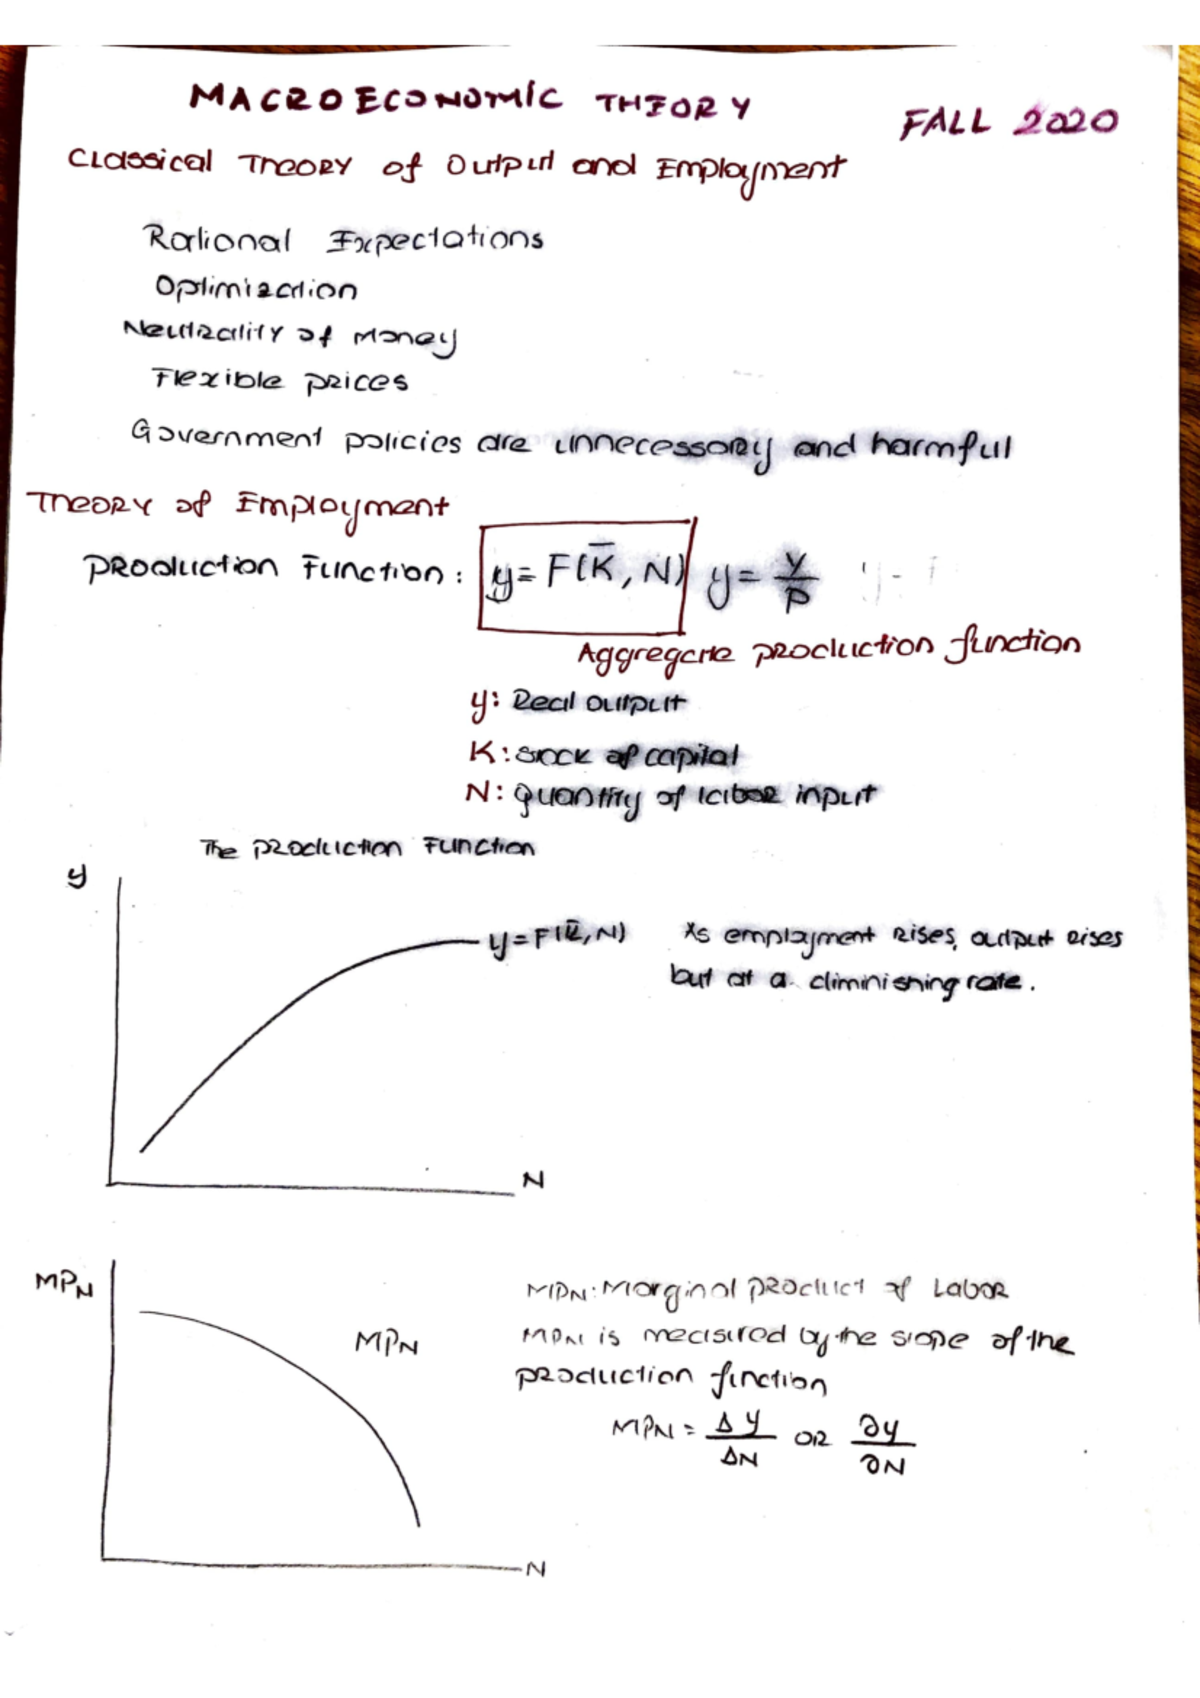 MACROECONOMIC THEORY FALL 2020
Classical Theory of Output and Employment
Rational Expectations
Optimization
Neutrality of Money
Flexible prices
Government policies are unnecessary and harmful
Theory of Employment
Production Function: y = F(K̄, N) y = Y/P
Aggregate production function
y: Real output
K: Stock of capital
N: Quantity of labor input
The production Function
y
y = F(K̄, N) As employment rises, output rises
but at a diminishing rate.
N
MPN MPN: Marginal product of Labor
MPN MPN is measured by the slope of the
production function
MPN = Δy/ΔN OR ∂y/∂N
N